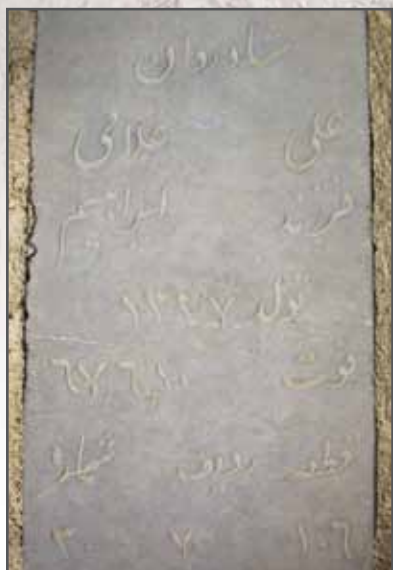 شادروان
علی غلامی
فرزند ابراهیم
تولد ۱۳۴۷
فوت ٦٧٫٦٫١٠
قطعه ردیف شماره
۱۰٦ ۷ ۳۰